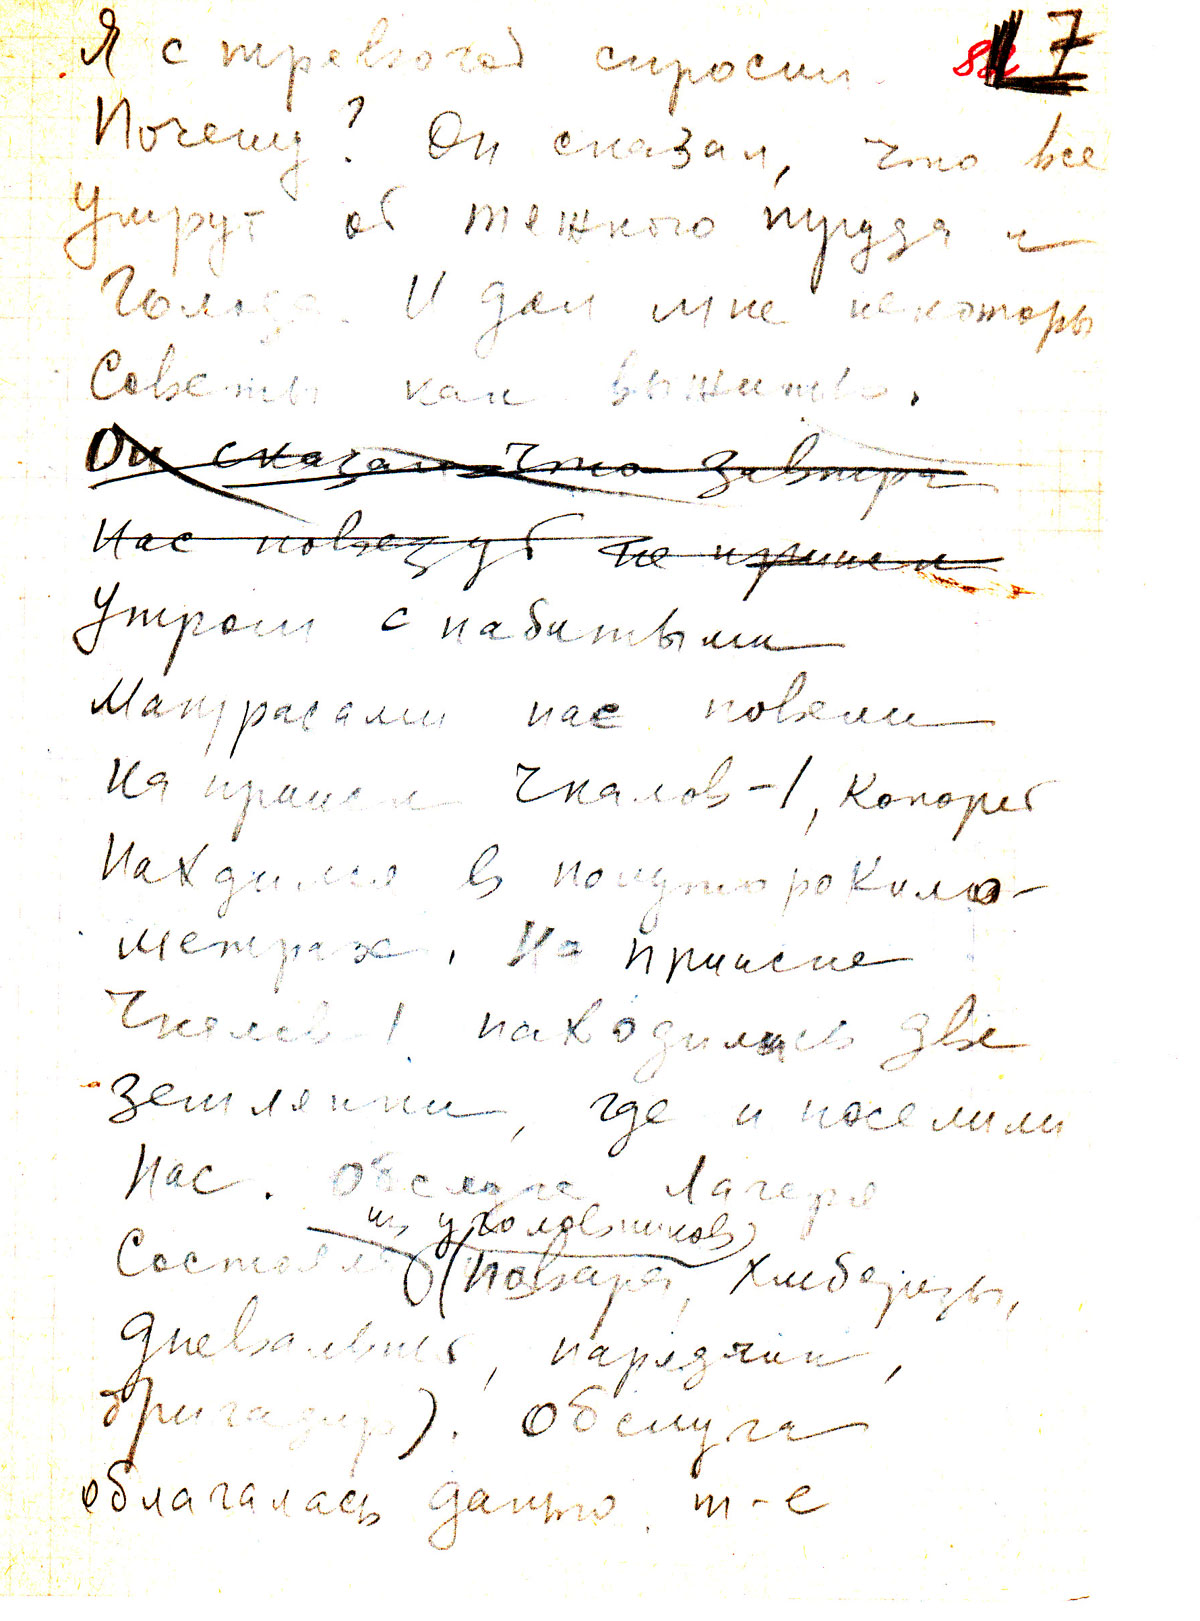 Я с тревогой спросил 7
Почему? Он сказал, что все
умрут от тяжкого труда и
голода. И дал мне некоторы
Советы как выжить.
Он сказал что завтра
Нас повезут на прииск
Утром с набитыми
Матрасами нас повели
На прииск Чкалов-1, который
Находился в полутора кило-
метрах. На прииске
Чкалов-1 находились две
землянки, где и поселили
Нас. Обслуга лагеря
из уголовников
Состояла (повара, хлеборезы,
дневальный, нарядчик,
бригадир). Обслуга
облагалась данью т-е